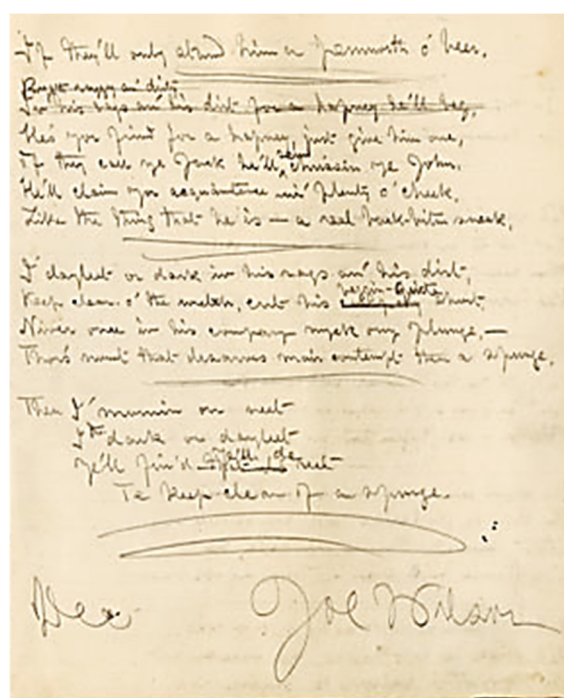 If they'll only stand him a pennorth o' beer.
Ragg'd raggy an' dirty
In his rags an' his dirt for a hapney he'll beg,
He's yor frind for a hapney, just give him one,
If they call ye Jack he'll chrissin ye John.
He'll claim yor acquantence wi' plenty o' cheek,
Like the thing that he is — a real back-bitin sneak.
I' dayleet or dark in his rags an' his dirt,
Keep clear o' the wretch, cut his shirt,
Niver once in his company myek ony plunge, —
Thor's nowt that desarves mair contempt than a spunge.
Then I' mornin or neet
I' dark or dayleet
Ye'll find reet
Te keep clear of a spunge.
Joe Wilson